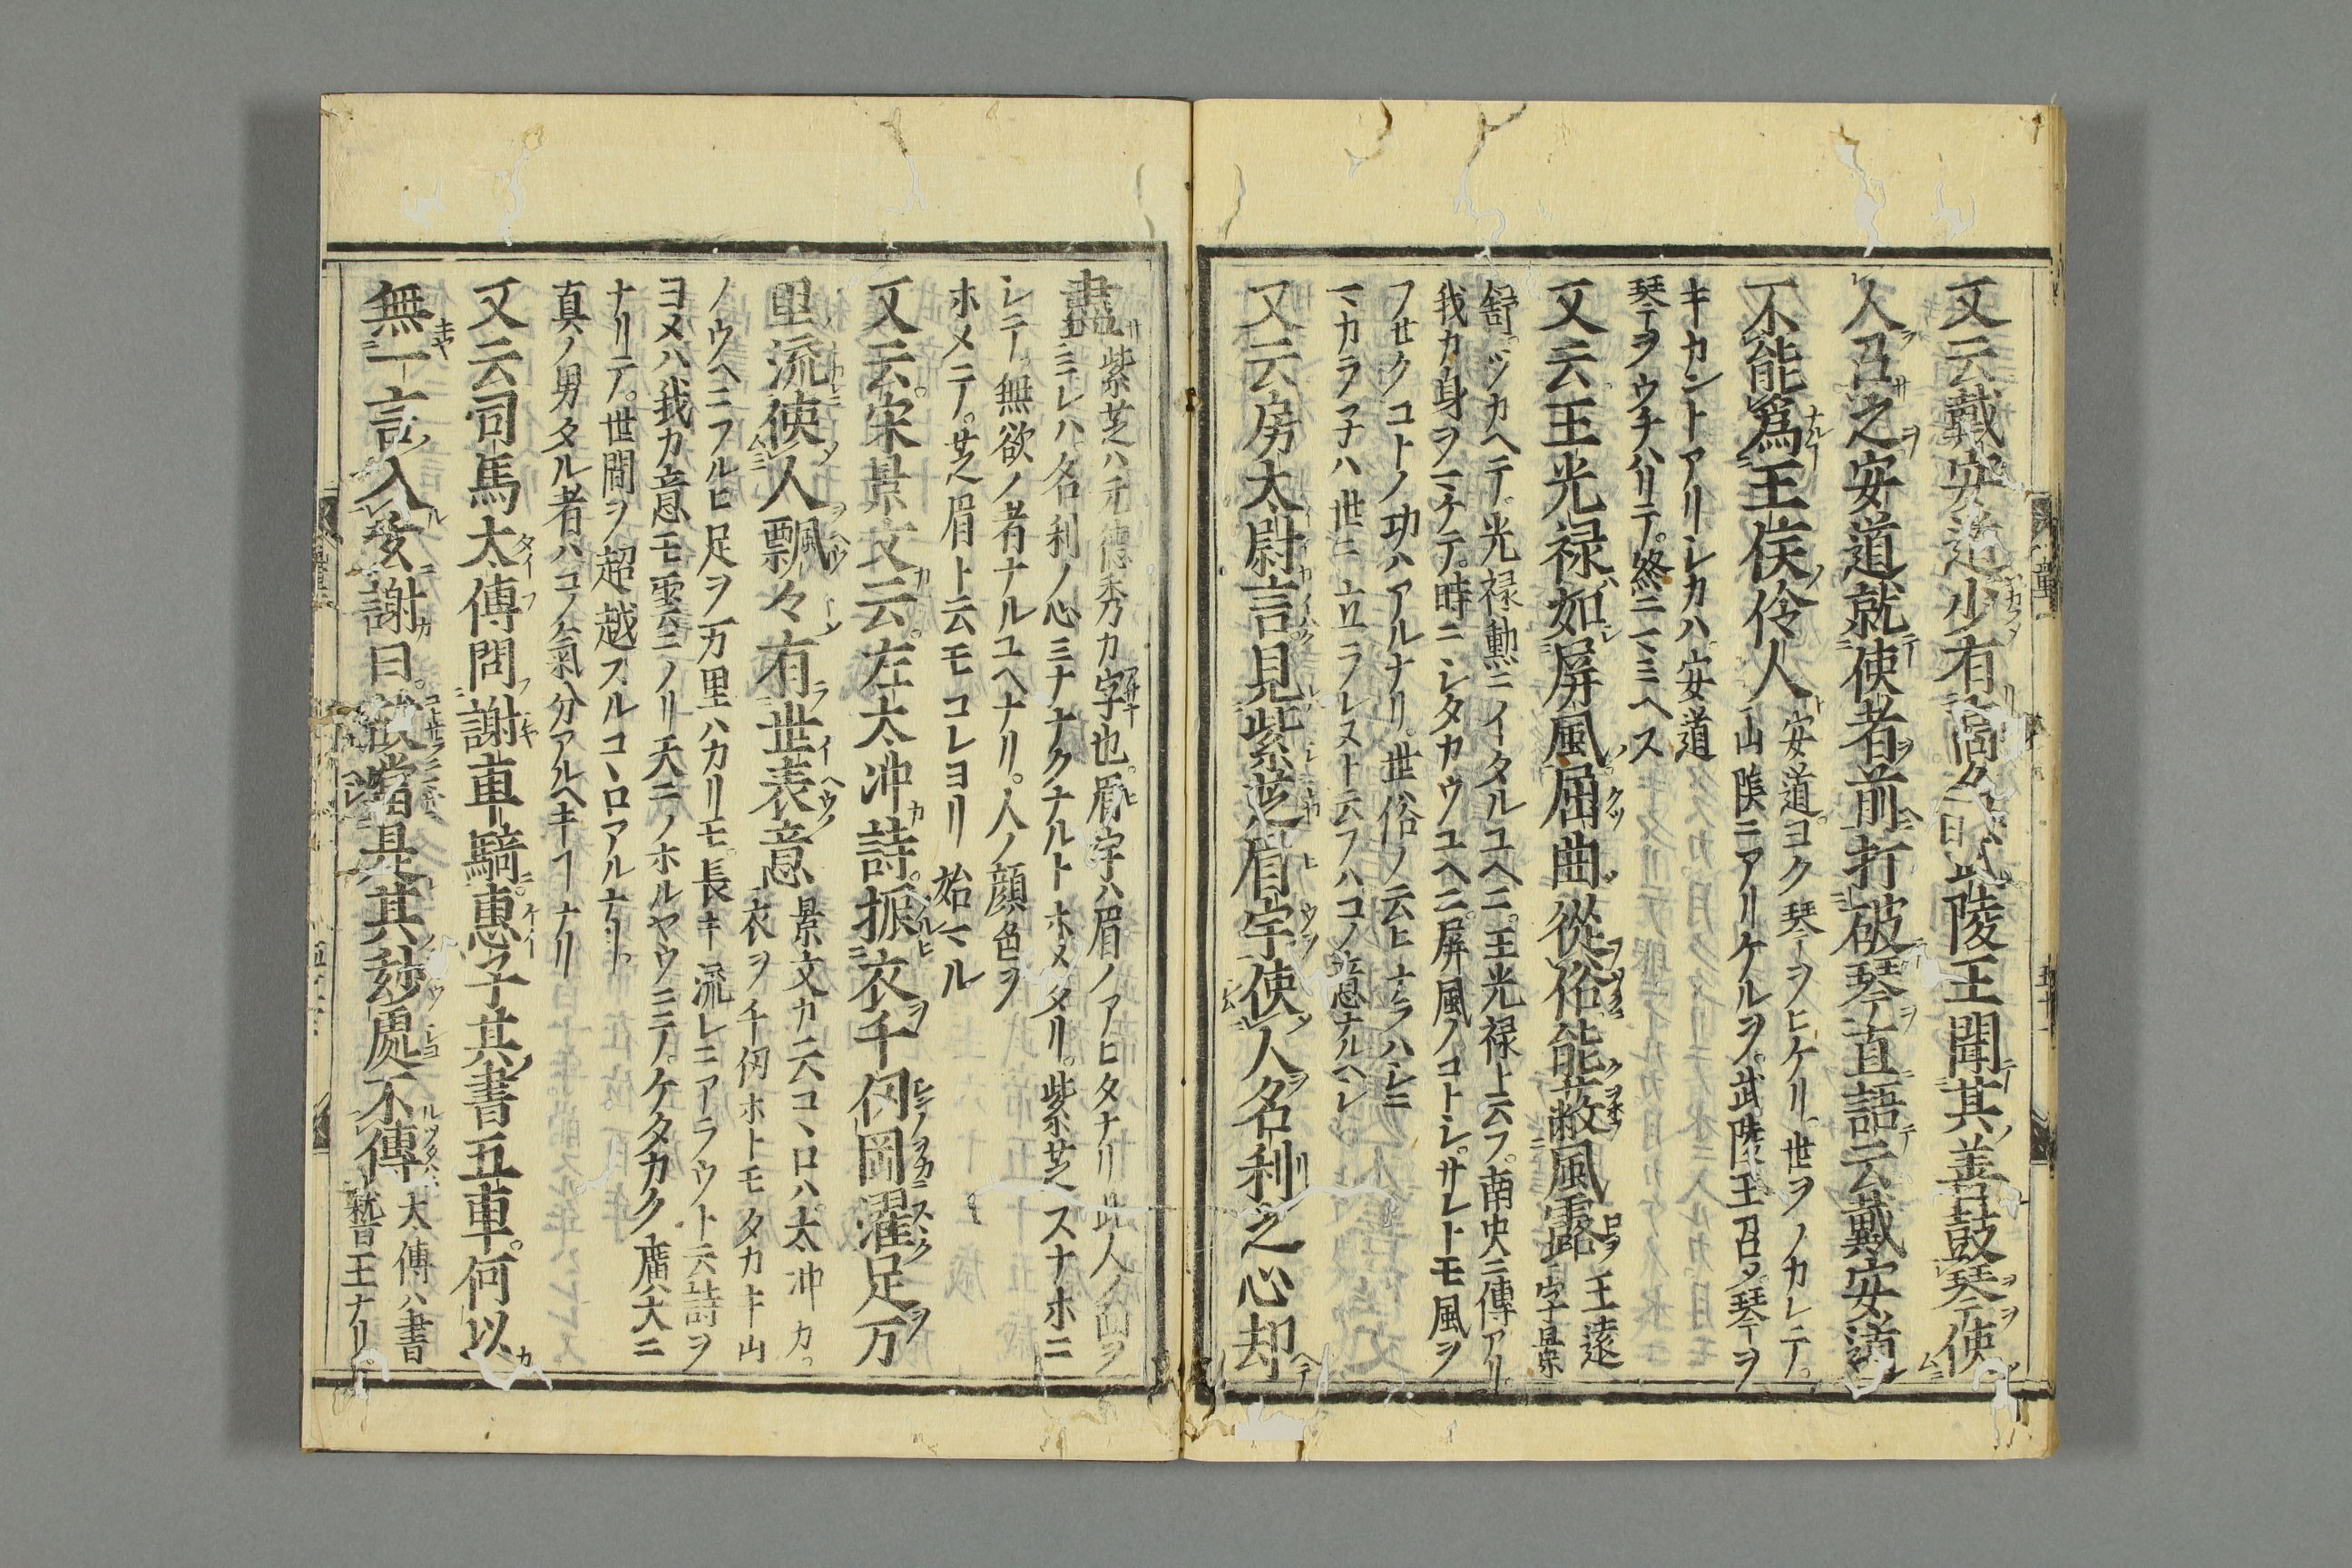 又云戴安道少有高名武陵王聞其善鼓琴使
人召之安道就使者前打破琴直語云戴安道
不能爲王侯伶人安道ヨク琴ヲヒケリ世ヲノカレテ
山陰ニアリケルヲ武陵王召〆琴ヲ
キカントアリシカハ安道
琴ヲウチハリテ終ニマミヘス
又云王光禄如屏風屈曲從俗能蔽風露王遠
字景
舒ツカヘテ光禄勲ニイタルユヘニ王光禄ト云フ南史ニ傳アリ
我カ身ヲマケテ時ニシタカウユヘニ屏風ノコトシサレトモ風ヲ
フセクコトノ功ハアルナリ世俗ノ云ヒナラハシニ
マカラ子ハ世ニ立ラレヌト云フハコノ意ナルヘシ
又云房太尉言見紫芝眉宇使人名利之心却
盡紫芝ハ元徳秀カ字也眉宇ハ眉ノアヒタナリ此人ノ面ヲ
ミレハ名利ノ心ミナナクナルトホメタリ紫芝スナホニ
シテ無欲ノ者ナルユヘナリ人ノ顔色ヲ
ホメニテ芝眉ト云モコレヨリ始マル
又云宋景文云左太冲詩振衣千仭岡濯足万
里流使人飄々有世表意景文カ云コヽロハ太冲カ
衣ヲ千仭ホトモタカキ山
ノウヘニフルヒ足ヲ万里ハカリモ長キ流レニアラウト云詩ヲ
ヨメハ我カ意モ雲ニノリ天ニノホルヤウニテケタカク廣大ニ
ナリテ世間ヲ超越スルコヽロアルナリ
真ノ男タル者ハコノ氣分アルヘキヿナリ
又云司馬太傅問謝車騎惠子其書五車何以
無一言入玄謝曰故當是其妙處不傳太傅ハ書
晋王ナリ